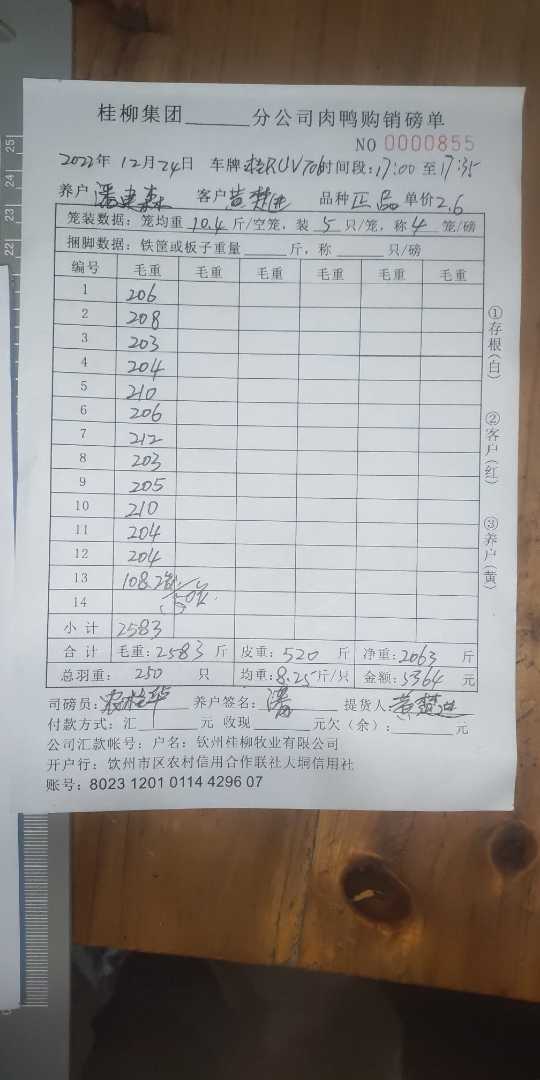 桂柳集团______分公司肉鸭购销磅单
NO 0000855
2022年12月24日 车牌:桂RUV706时间段:17:00至17:35
养户 潘建森 客户 黄楚进 品种 正品 单价2.6
笼装数据: 笼均重 10.4 斤/空笼, 装 5 只/笼, 称 4 笼/磅
捆脚数据: 铁筐或板子重量 ______ 斤, 称 ______ 只/磅
编号 毛重 毛重 毛重 毛重 毛重 毛重
1 206
2 208
3 203
4 204
5 210
6 206
7 212
8 203
9 205
10 210
11 204
12 204
13 108.2笼
14
小计 2583
合计 毛重:2583斤 皮重:520 斤 净重:2063 斤
总羽重: 250 只 均重:8.25斤/只 金额:5364 元
司磅员: 养户签名:潘 提货人:黄楚进
付款方式:汇______元 收现______元欠(余):______元
公司汇款帐号: 户名: 钦州桂柳牧业有限公司
开户行: 钦州市区农村信用合作联社大垌信用社
账号: 8023 1201 0114 4296 07
①存根(白)
②客户(红)
③养户(黄)
25
24
23
22